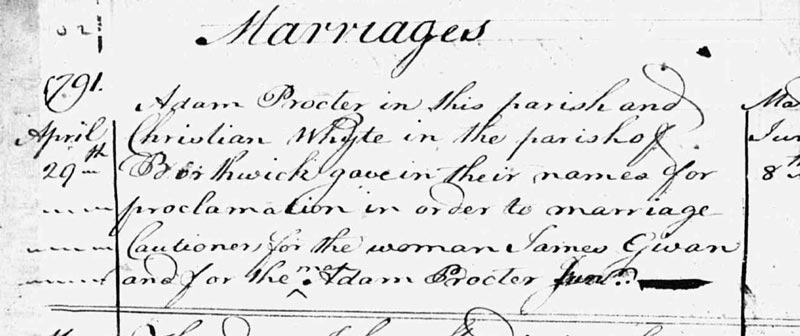 Marriages
1791.
April 29th
Adam Procter in this parish and
Christian Whyte in the parish of
Borthwick gave in their names for
proclamation in order to marriage
Cautioners for the woman James Gwan
and for the met Adam Procter Junr.
Ma
Jun
8th